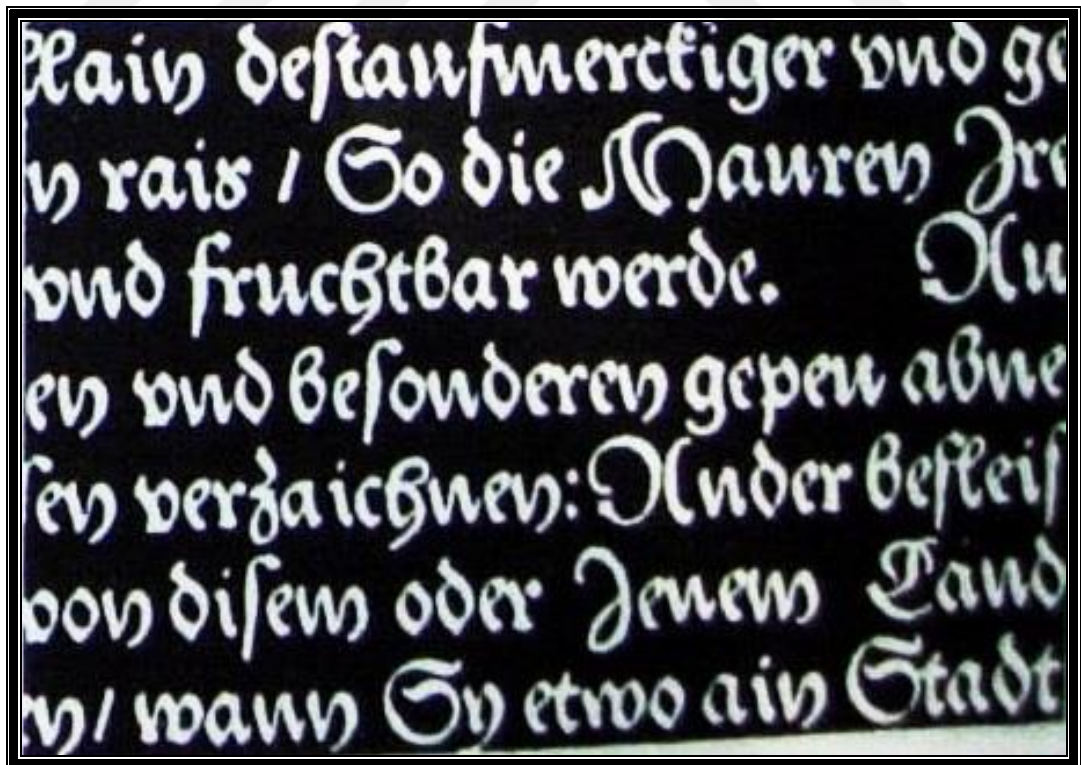 llain deſtaufmerckiger vnd ge
n rais / So die Mauren Jre
vnd fruchtbar werde. Nu
en vnd beſonderen gepeu abne
ſen verzaichnen: Ander befleiſ
von diſem oder Jenem Land
en / wann Sy etwo ain Stadt